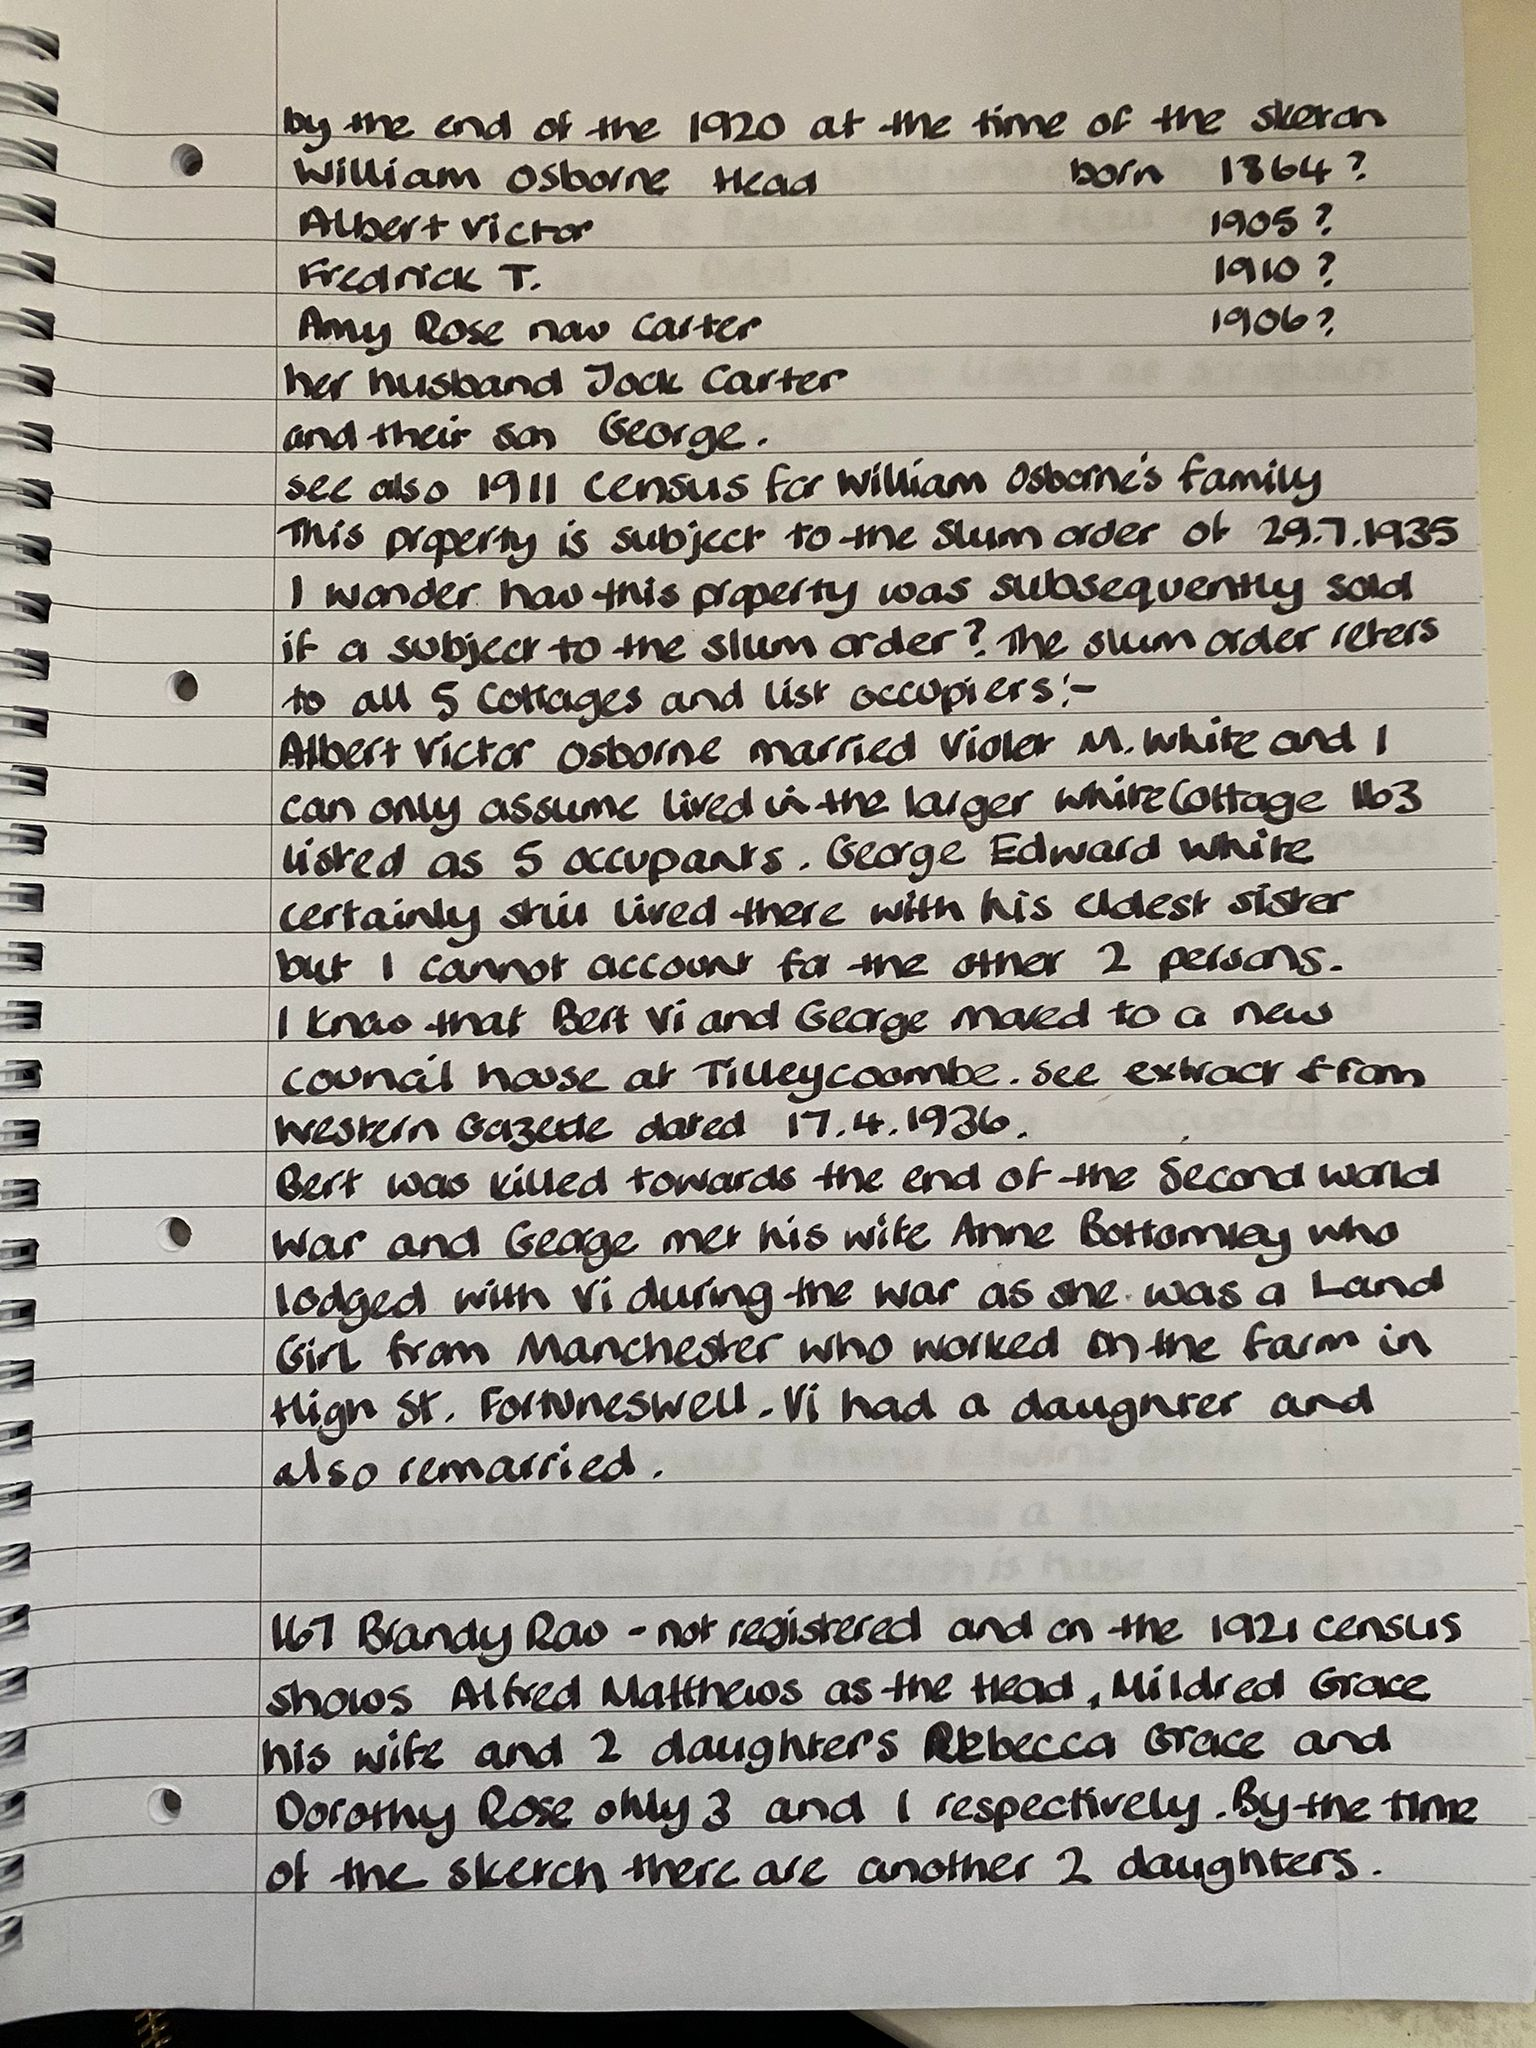 by the end of the 1920 at the time of the sketch
William Osborne Head born 1864?
Albert Victor 1905?
Fredrick T. 1910?
Amy Rose now Carter 1906?
her husband Jock Carter
and their son George.
see also 1911 Census for William Osborne's family
This property is subject to the Slum order of 29.7.1935
I wonder how this property was subsequently sold
if a subject to the slum order? The slum order refers
to all 5 Cottages and list occupiers:-
Albert Victor Osborne married Violet M. White and I
can only assume lived in the larger White Cottage 163
listed as 5 occupants. George Edward White
certainly still lived there with his eldest sister
but I cannot account for the other 2 persons.
I know that Bert Vi and George moved to a new
council house at Tilleycoombe. See extract from
Western Gazette dated 17.4.1936.
Bert was killed towards the end of the Second World
War and George met his wife Anne Bottomley who
lodged with Vi during the war as she was a Land
Girl from Manchester who worked on the farm in
High St. Fortuneswell. Vi had a daughter and
also remarried.
167 Brandy Row - not registered and on the 1921 census
shows Alfred Matthews as the Head, Mildred Grace
his wife and 2 daughters Rebecca Grace and
Dorothy Rose only 3 and 1 respectively. By the time
of the sketch there are another 2 daughters.